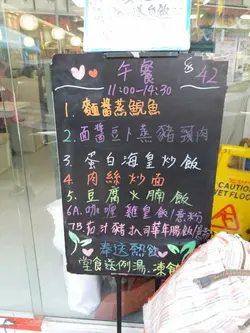 午餐
$42
11:00-14:30
1. 麵醬蒸鯇魚
2. 面醬豆卜蒸豬頸肉
3. 蛋白海皇炒飯
4. 肉絲炒面
5. 豆腐火腩飯
6A. 咖喱雞皇飯/意粉
7B. 茄汁豬扒司華年腸飯/意
奉送熱飲
堂食送例湯,凍飲
CAUTION
WET FLOOR